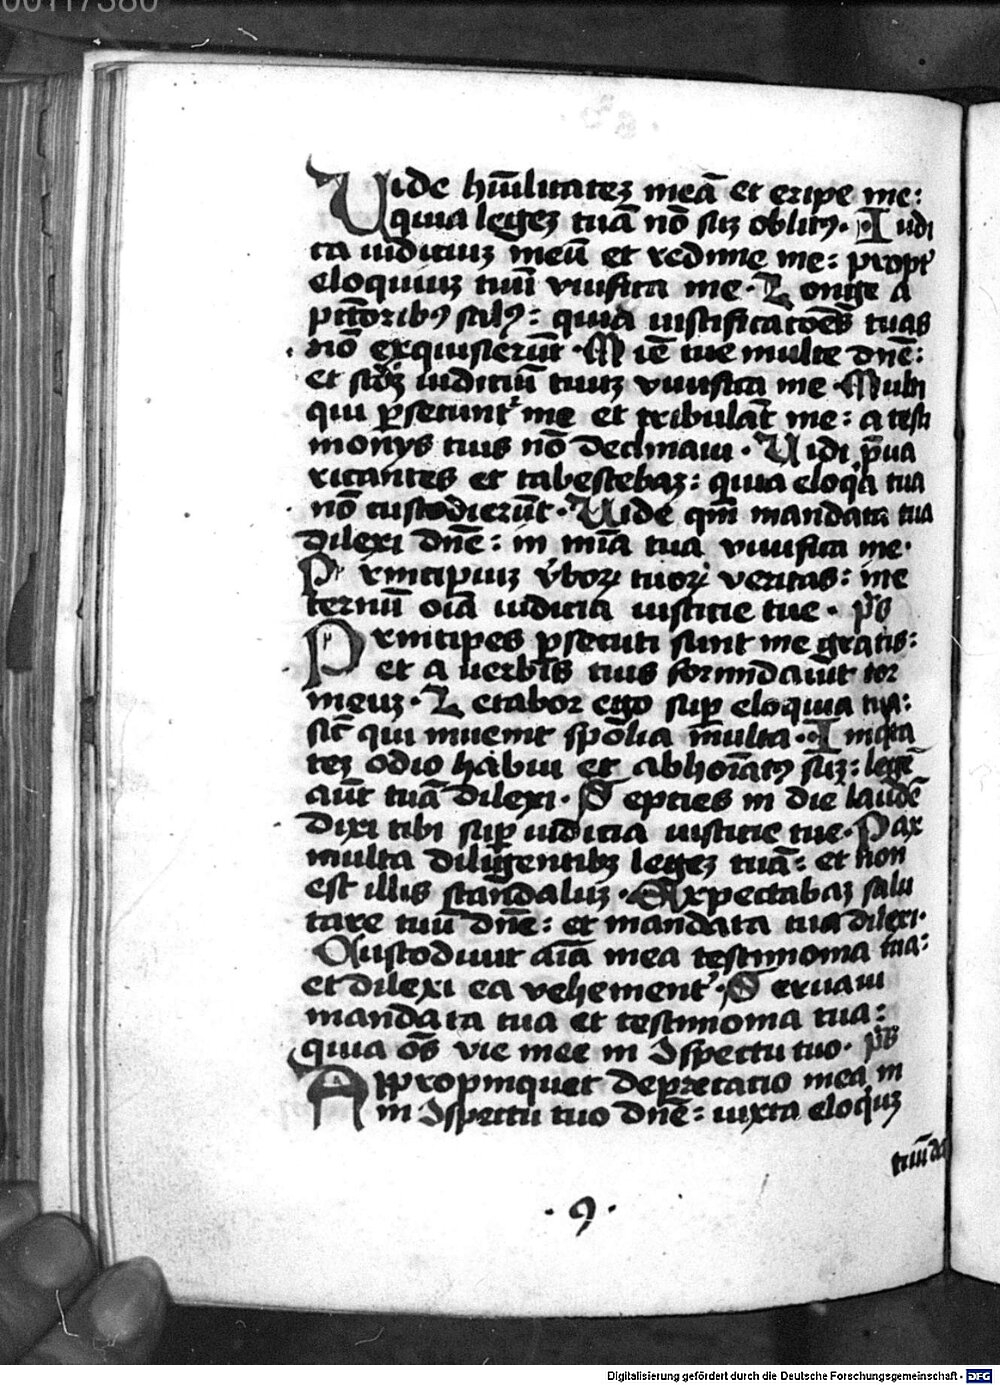 00117380
Uide hūilitatez meā et eripe me:
quia legez tuā nō suz oblitꝰ. Iudi
ca iudiciuz meū et redime me: propt̾
eloquiuz tuū viuifica me. Longe a
pctōribꝰ salꝰ: quia iustificatōes tuas
nō exquisierūt. Mīe tue multe dne̅:
et scdꝫ iudiciū tuuz viuifica me. Multi
qui ꝑsecuntʳ me et tribulāt me: a testi
monys tuis nō declinaui. Uidi p̄ua
ricantes et tabescebaz: quia eloqa tua
nō custodierūt. Uide qm̄ mandata tua
dilexi dne̅: in mīa tua viuifica me.
Principiuz v̾boꝝ tuoꝝ veritas: in e
ternū oīa iudicia iusticie tue. p̄s
Principes ꝑsecuti sunt me gratis:
et a uerbis tuis formidauīt cor
meuz. Letabor ego suꝑ eloquia tua:
sic̄ qui inuenit spōlia m̄ulta. Iniqita
tez odio habui et abhoīatꝰ suz: lege̅
aūt tuā dilexi. Septies in die laude̅
dixi tibi suꝑ iudicia iusticie tue. Pax
multa diligentibꝫ legez tuā: et non
est illis scandaluz. Expectabaz salu
tare tuū dne̅: et mandata tua dilexi.
Custodiuit aīa mea testimonia tua:
et dilexi ea vehement̾. Seruaui
mandata tua et testimonia tua:
quia oe̅s vie mee in ɔspectu tuo. p̄s
Appropinquet deprecatio mea in
in ɔspectu tuo dne̅: iuxta eloquiz
tuū da
. 9 .
Digitalisierung gefördert durch die Deutsche Forschungsgemeinschaft - DFG